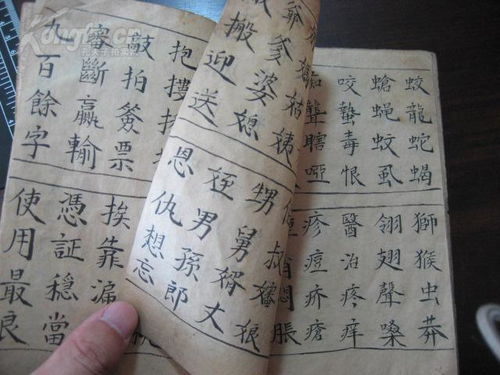 蛟龍蛇蝎
螥蝇蚊虱
咬毒恨
聾瞎啞
獅猴虫莽
翎翅聲嗓
醫治疼痒
疹痘疥瘡
脹
爺爹婆媳
搬迎送
甥舅婿丈
姪男孫郎
恩仇想忘
抱摟
敲拍簽票
審斷贏輸
九百餘字
挨靠漏
憑証穩當
使用最良